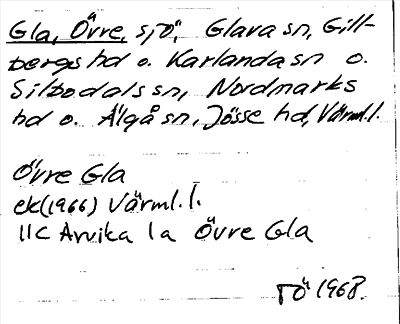 Gla, Övre, sjö, Glava sn, Gill-
bergs hd o. Karlanda sn o.
Silbodals sn, Nordmarks
hd o. Älgå sn, Jösse hd, Värml. l.
Övre Gla
ek (1966) Värml. l.
11C Arvika 1a Övre Gla
TÖ 1968.